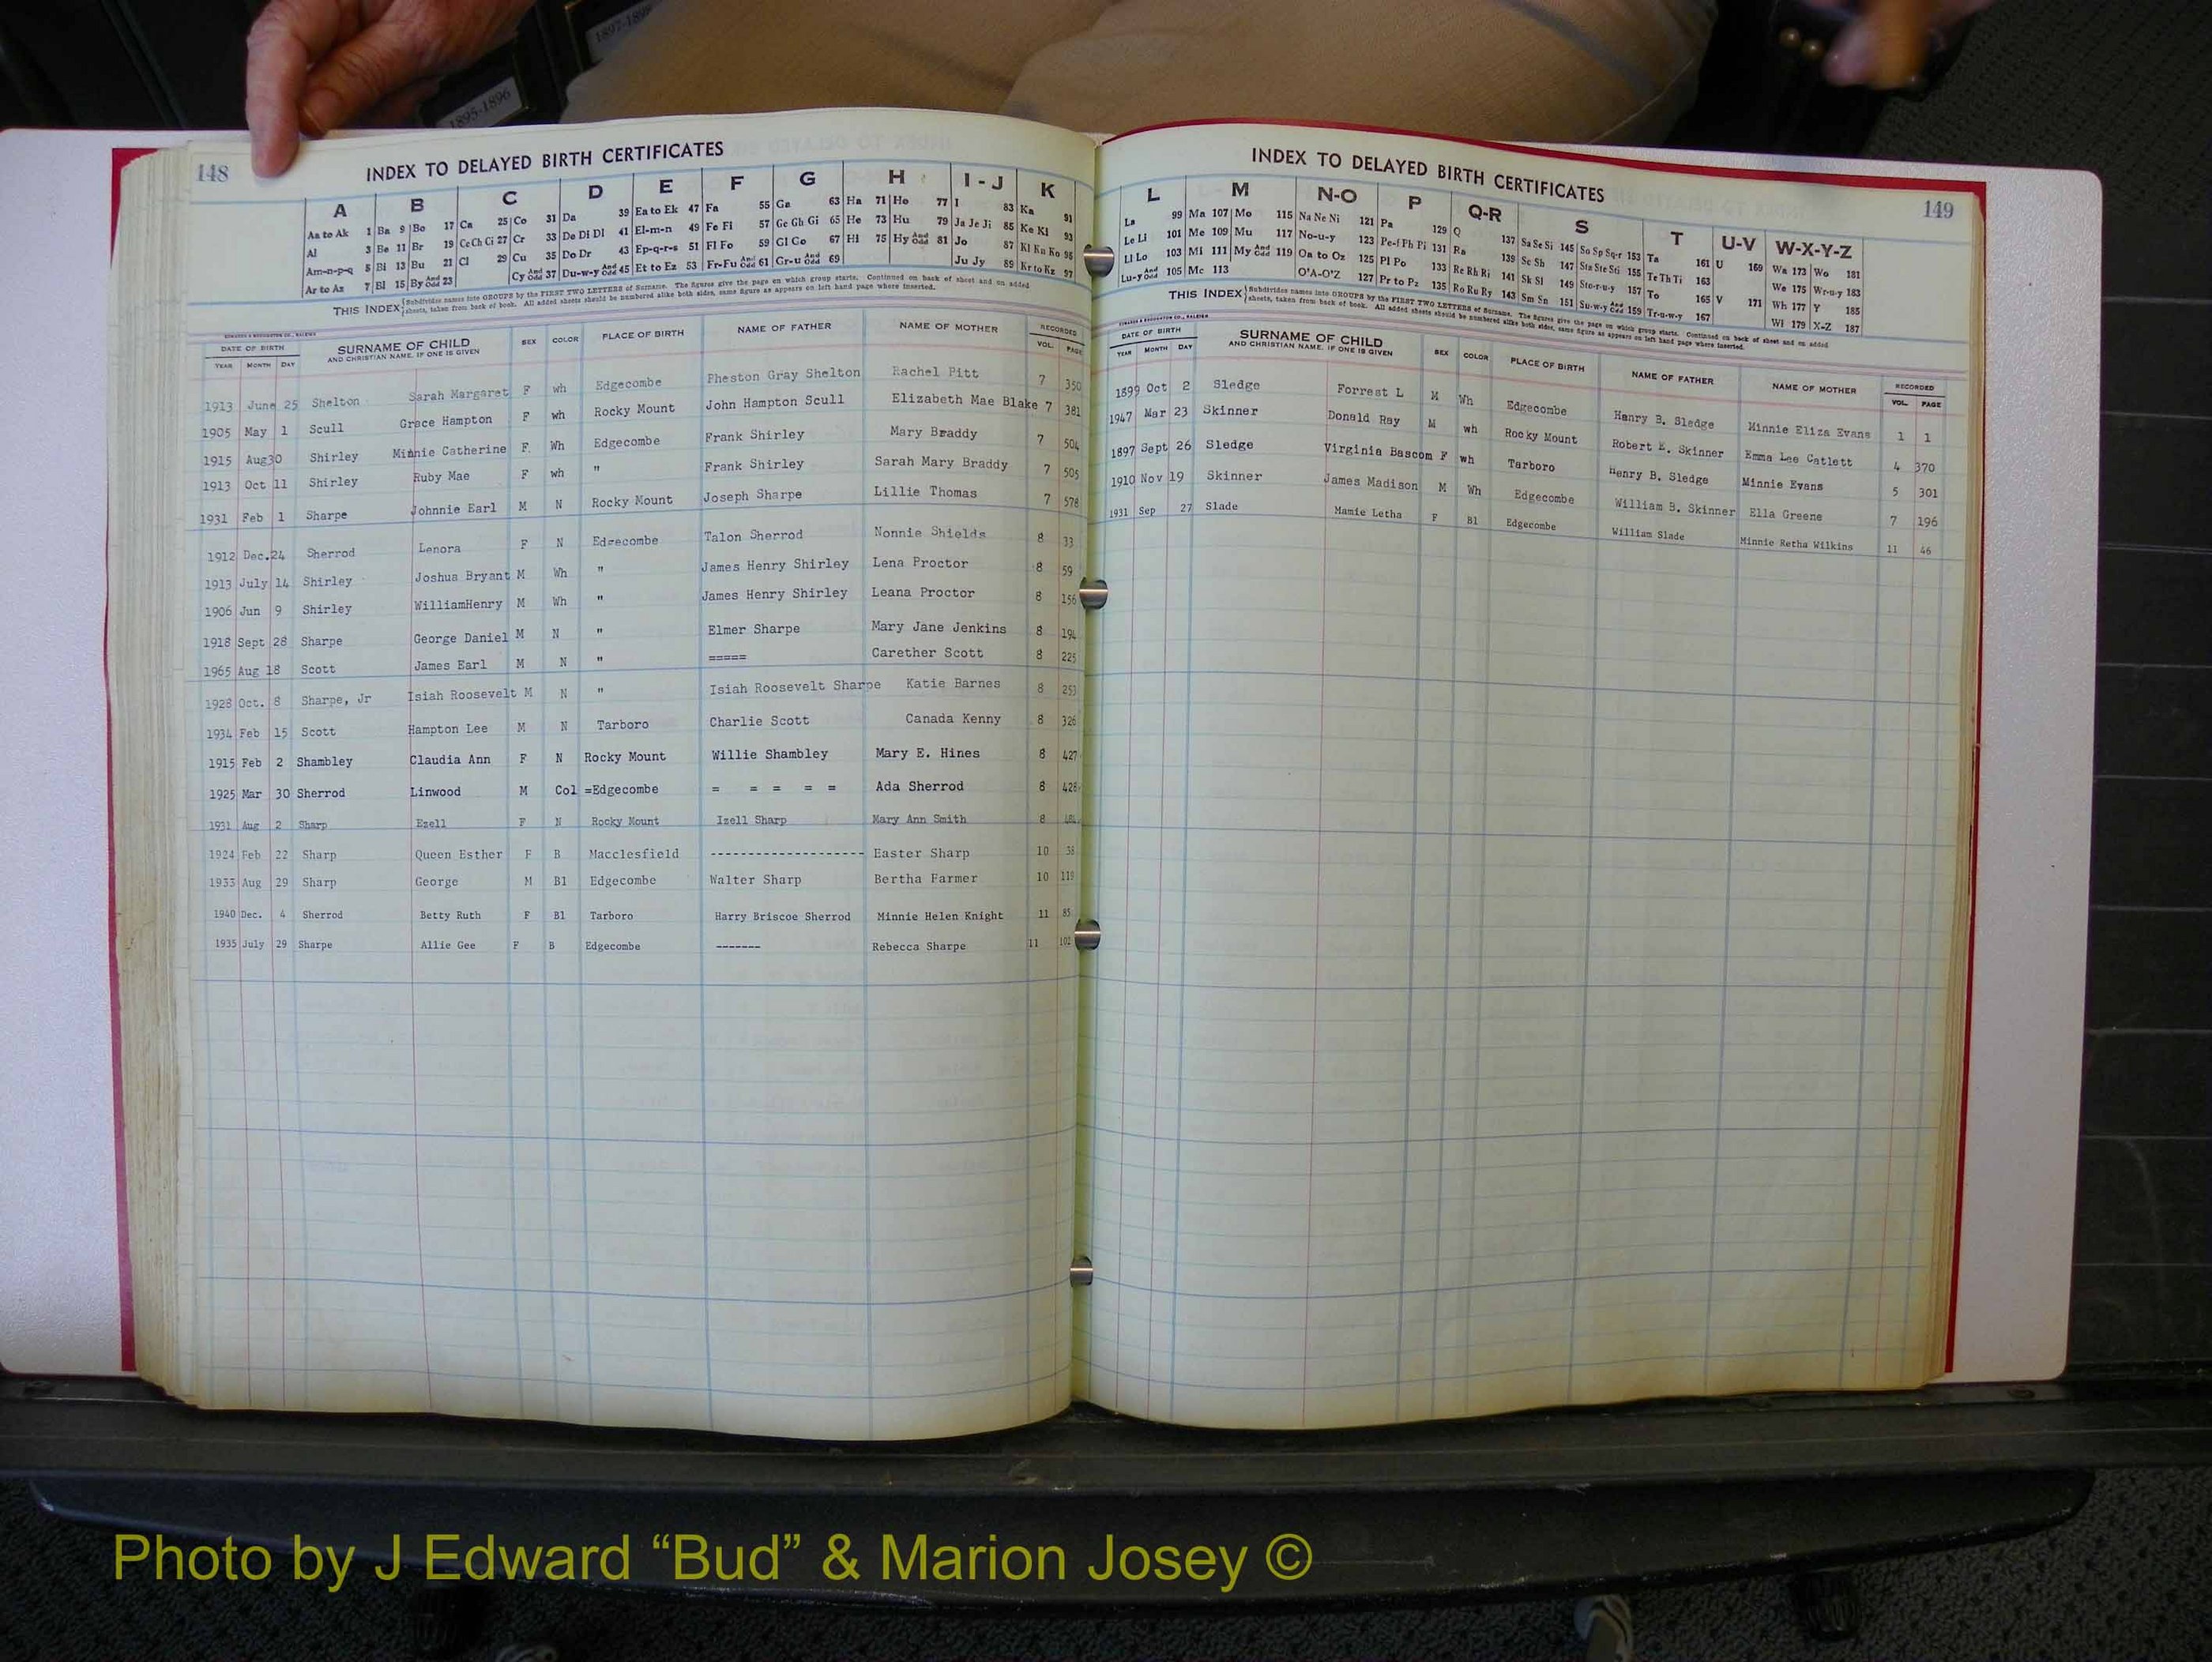 1897-1898
1895-1896
148
INDEX TO DELAYED BIRTH CERTIFICATES
A B C D E F G H I-J K
Aa to Ak 1 Ba 9 Bo 17 Ca 25 Co 31 Da 39 Ea to Ek 47 Fa 55 Ga 63 Ha 71 Ho 77 I 83 Ka 91
Al 3 Be 11 Br 19 Ce Ch Ci 27 Cr 33 De Di Dl 41 El-m-n 49 Fe Fi 57 Ge Gh Gi 65 He 73 Hu 79 Ja Je Ji 85 Ke Kl 93
Am-n-p-q 5 Bi 13 Bu 21 Cl 29 Cu 35 Do Dr 43 Ep-q-r-s 51 Fl Fo 59 Gl Go 67 Hi 75 Hy And Odd 81 Jo 87 Kl Kn Ko 95
Ar to Az 7 Bl 15 By And Odd 23 Cy And Odd 37 Du-w-y And Odd 45 Et to Ez 53 Fr-Fu And Odd 61 Gr-u And Odd 69 Ju Jy 89 Kr to Kz 97
THIS INDEX Subdivides names into GROUPS by the FIRST TWO LETTERS of Surname. The figures give the page on which group starts. Continued on back of sheet and on added
sheets, taken from back of book. All added sheets should be numbered alike both sides, same figure as appears on left hand page where inserted.
EDWARDS & BROUGHTON CO., RALEIGH
DATE OF BIRTH SURNAME OF CHILD SEX COLOR PLACE OF BIRTH NAME OF FATHER NAME OF MOTHER RECORDED
YEAR MONTH DAY AND CHRISTIAN NAME, IF ONE IS GIVEN VOL. PAGE
1913 June 25 Shelton Sarah Margaret F wh Edgecombe Pheston Gray Shelton Rachel Pitt 7 350
1905 May 1 Scull Grace Hampton F wh Rocky Mount John Hampton Scull Elizabeth Mae Blake 7 381
1915 Aug30 Shirley Minnie Catherine F Wh Edgecombe Frank Shirley Mary Braddy 7 504
1913 Oct 11 Shirley Ruby Mae F wh " Frank Shirley Sarah Mary Braddy 7 505
1931 Feb 1 Sharpe Johnnie Earl M N Rocky Mount Joseph Sharpe Lillie Thomas 7 578
1912 Dec.24 Sherrod Lenora F N Edgecombe Talon Sherrod Nonnie Shields 8 33
1913 July 14 Shirley Joshua Bryant M Wh " James Henry Shirley Lena Proctor 8 59
1906 Jun 9 Shirley WilliamHenry M Wh " James Henry Shirley Leana Proctor 8 156
1918 Sept 28 Sharpe George Daniel M N " Elmer Sharpe Mary Jane Jenkins 8 194
1965 Aug 18 Scott James Earl M N " ===== Carether Scott 8 225
1928 Oct. 8 Sharpe, Jr Isiah Roosevelt M N " Isiah Roosevelt Sharpe Katie Barnes 8 253
1934 Feb 15 Scott Hampton Lee M N Tarboro Charlie Scott Canada Kenny 8 326
1915 Feb 2 Shambley Claudia Ann F N Rocky Mount Willie Shambley Mary E. Hines 8 427
1925 Mar 30 Sherrod Linwood M Col =Edgecombe = = = = = Ada Sherrod 8 428
1931 Aug 2 Sharp Ezell F N Rocky Mount Izell Sharp Mary Ann Smith 8
1924 Feb 22 Sharp Queen Esther F B Macclesfield -------------------- Easter Sharp 10 38
1933 Aug 29 Sharp George M Bl Edgecombe Walter Sharp Bertha Farmer 10 119
1940 Dec. 4 Sherrod Betty Ruth F Bl Tarboro Harry Briscoe Sherrod Minnie Helen Knight 11 85
1935 July 29 Sharpe Allie Gee F B Edgecombe ------- Rebecca Sharpe 11 102
INDEX TO DELAYED BIRTH CERTIFICATES
149
L M N-O P Q-R S T U-V W-X-Y-Z
La 99 Ma 107 Mo 115 Na Ne Ni 121 Pa 129 Q 137 Sa Se Si 145 So Sp Sq-r 153 Ta 161 U 169 Wa 173 Wo 181
Le Li 101 Me 109 Mu 117 No-u-y 123 Pe-f Ph Pi 131 Ra 139 Sc Sh 147 Sta Ste Sti 155 Te Th Ti 163 We 175 Wr-u-y 183
Ll Lo 103 Mi 111 My And Odd 119 Oa to Oz 125 Pl Po 133 Re Rh Ri 141 Sk Sl 149 Sto-r-u-y 157 To 165 V 171 Wh 177 Y 185
Lu-y And Odd 105 Mc 113 O'A-O'Z 127 Pr to Pz 135 Ro Ru Ry 143 Sm Sn 151 Su-w-y And Odd 159 Tr-u-w-y 167 Wi 179 X-Z 187
THIS INDEX Subdivides names into GROUPS by the FIRST TWO LETTERS of Surname. The figures give the page on which group starts. Continued on back of sheet and on added
sheets, taken from back of book. All added sheets should be numbered alike both sides, same figure as appears on left hand page where inserted.
EDWARDS & BROUGHTON CO., RALEIGH
DATE OF BIRTH SURNAME OF CHILD SEX COLOR PLACE OF BIRTH NAME OF FATHER NAME OF MOTHER RECORDED
YEAR MONTH DAY AND CHRISTIAN NAME, IF ONE IS GIVEN VOL. PAGE
1899 Oct 2 Sledge Forrest L M Wh Edgecombe Henry B. Sledge Minnie Eliza Evans 1 1
1947 Mar 23 Skinner Donald Ray M wh Rocky Mount Robert E. Skinner Emma Lee Catlett 4 370
1897 Sept 26 Sledge Virginia Bascom F wh Tarboro Henry B. Sledge Minnie Evans 5 301
1910 Nov 19 Skinner James Madison M Wh Edgecombe William B. Skinner Ella Greene 7 196
1931 Sep 27 Slade Mamie Letha F Bl Edgecombe William Slade Minnie Retha Wilkins 11 46
Photo by J Edward “Bud” & Marion Josey ©